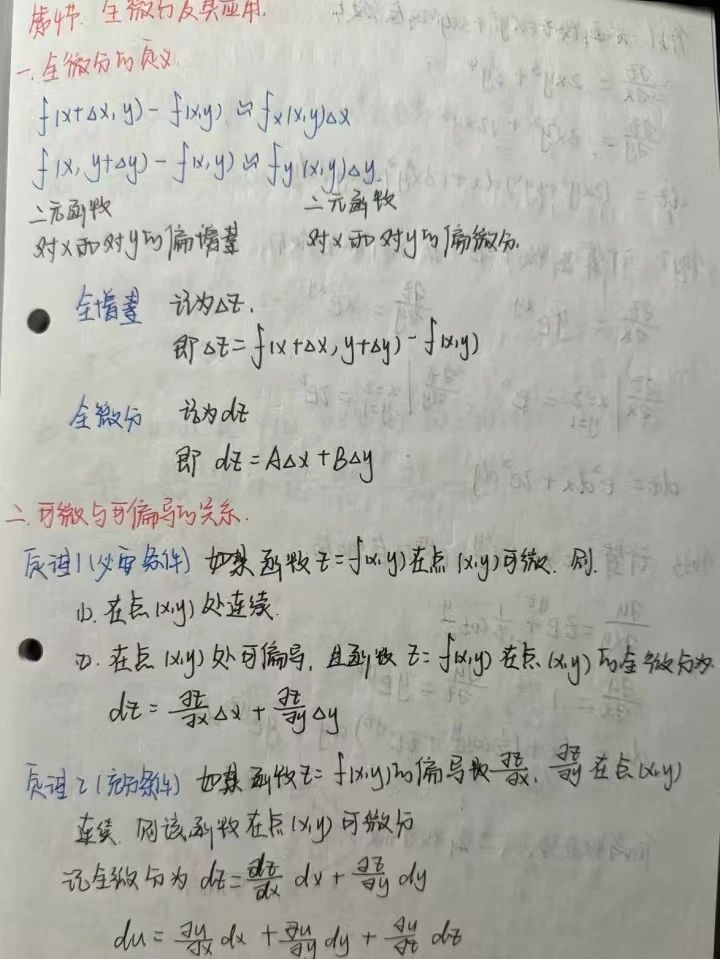 第4节. 全微分及其应用.
一.全微分的定义.
f(x+Δx, y) - f(x,y) ≈ fx(x,y)Δx
f(x, y+Δy) - f(x,y) ≈ fy(x,y)Δy.
二元函数 二元函数
对x和对y的偏增量 对x和对y的偏微分.
全增量 记为Δz.
即 Δz = f(x+Δx, y+Δy) - f(x,y)
全微分 记为dz
即 dz = AΔx + BΔy
二.可微与可偏导的关系.
定理1(必要条件) 如果函数z=f(x,y)在点(x,y)可微. 则.
(1). 在点(x,y)处连续.
(2). 在点(x,y)处可偏导, 且函数 z=f(x,y)在点(x,y)的全微分为
dz = ∂z/∂x Δx + ∂z/∂y Δy
定理2(充分条件) 如果函数z=f(x,y)的偏导数∂z/∂x, ∂z/∂y在点(x,y)
连续. 则该函数在点(x,y)可微分
记全微分为 dz = dz/dx dx + ∂z/∂y dy
du = ∂u/∂x dx + ∂u/∂y dy + ∂u/∂z dz